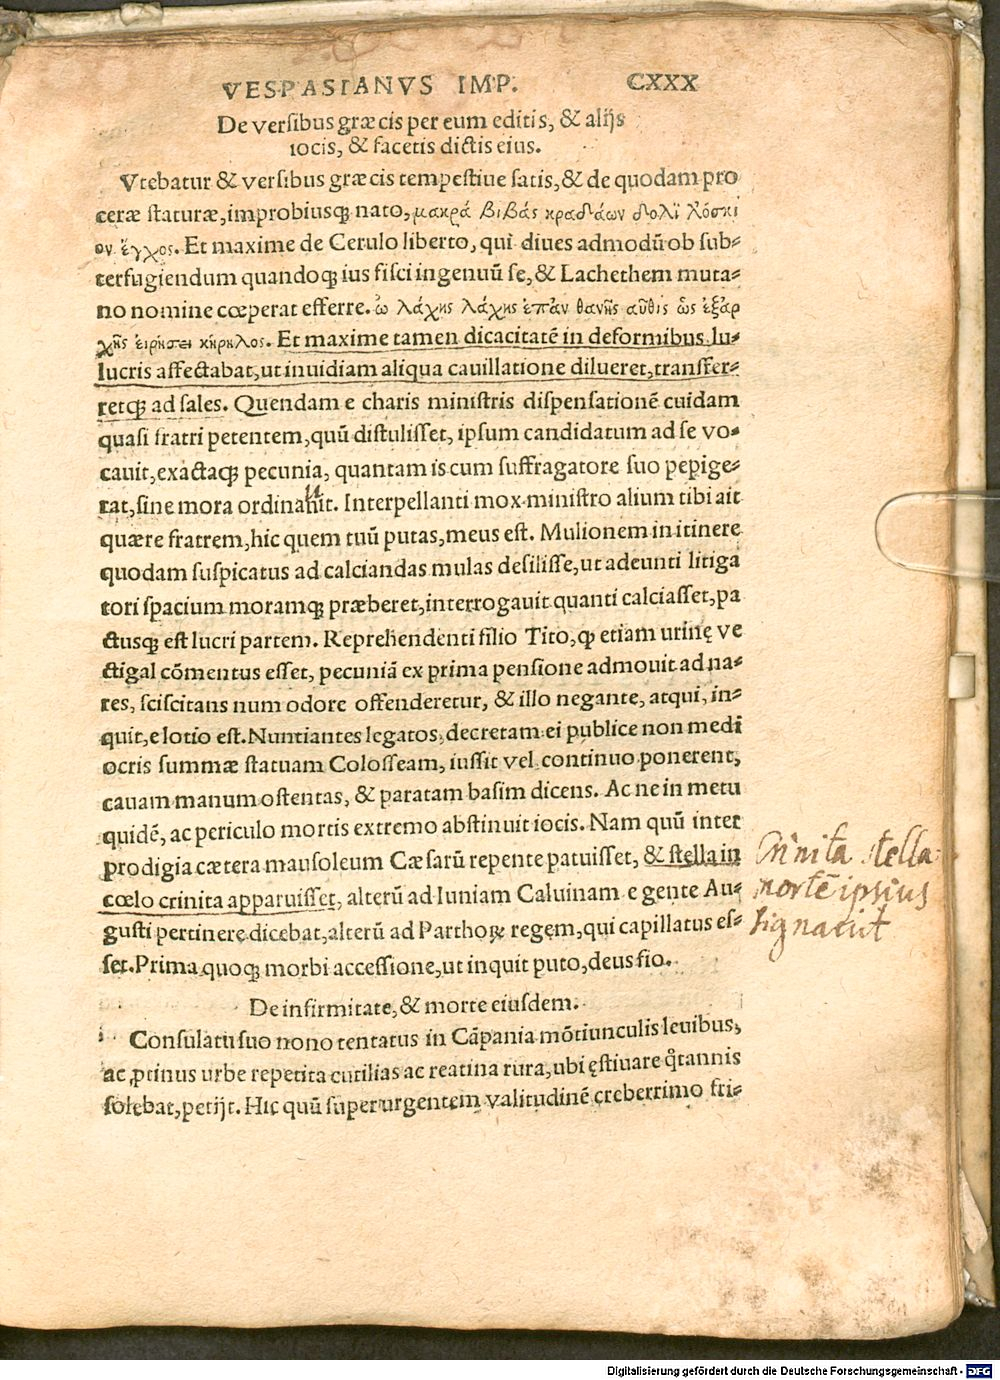 VESPASIANVS IMP. CXXX
De versibus græcis per eum editis, & alijs
iocis, & facetis dictis eius.
Vtebatur & versibus græcis tempestiue satis, & de quodam pro
ceræ staturæ, improbiusq; nato, μακρά βιβάς κραδάων δολι χόσκι
ον ἔγχος. Et maxime de Cerulo liberto, qui diues admodū ob sub-
terfugiendum quandoq; ius fisci ingenuū se, & Lachethem muta-
no nomine cœperat efferre. ὦ λάχης λάχης ἐπὰν θανῆς αὖθις ὡς ἐξἀρ
χῆς ἐιρήσει κηρηλος. Et maxime tamen dicacitatē in deformibus lu-
lucris affectabat, ut inuidiam aliqua cauillatione dilueret, transfer-
retq; ad sales. Quendam e charis ministris dispensationē cuidam
quasi fratri petentem, quū distulisset, ipsum candidatum ad se vo-
cauit, exactaq; pecunia, quantam is cum suffragatore suo pepige-
rat, sine mora ordinauit. Interpellanti mox ministro alium tibi ait
quære fratrem, hic quem tuū putas, meus est. Mulionem in itinere
quodam suspicatus ad calciandas mulas desilisse, ut adeunti litiga
tori spacium moramq; præberet, interrogauit quanti calciasset, pa
ctusq; est lucri partem. Reprehendenti filio Tito, ꝙ etiam urinę ve
ctigal cōmentus esset, pecuniā ex prima pensione admouit ad na-
res, sciscitans num odore offenderetur, & illo negante, atqui, in-
quit, e lotio est. Nuntiantes legatos, decretam ei publice non medi
ocris summæ statuam Colosseam, iussit vel continuo ponerent,
cauam manum ostentas, & paratam basim dicens. Ac ne in metu
quidē, ac periculo mortis extremo abstinuit iocis. Nam quū inter
prodigia cætera mausoleum Cæsarū repente patuisset, & stella in
cœlo crinita apparuisset, alterū ad Iuniam Caluinam e gente Au-
gusti pertinere dicebat, alterū ad Parthoꝝ regem, qui capillatus es-
set. Prima quoq; morbi accessione, ut inquit puto, deus fio.
Crinita stella
mortē ipsius
signauit
De infirmitate, & morte eiusdem.
Consulatu suo nono tentatus in Cāpania mōtiunculis leuibus,
ac ꝓtinus urbe repetita cutilias ac reatina rura, ubi ęstiuare qͣtannis
solebat, petijt. Hic quū super urgentem valitudinē creberrimo fri-
Digitalisierung gefördert durch die Deutsche Forschungsgemeinschaft - DFG